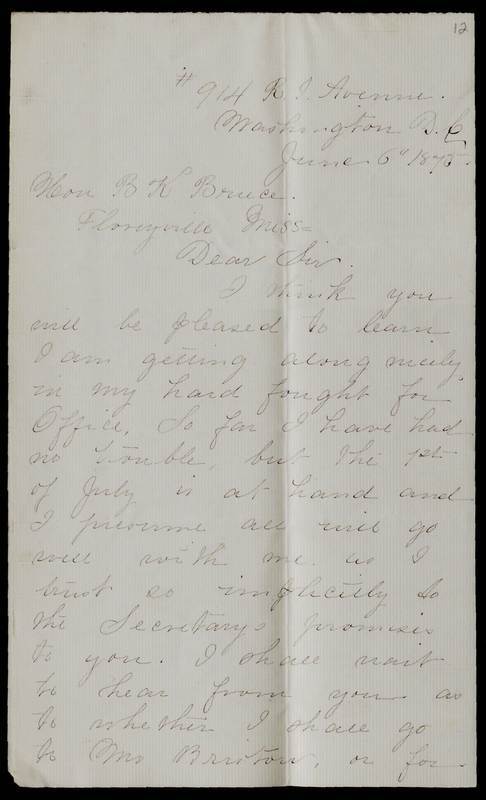 12
# 914 R. I. Avenue.
Washington D. C.
June 6" 1875.
Hon B K Bruce.
Floreyville Miss=
Dear Sir.
I think you
will be pleased to learn
I am getting along nicely
in my hard fought for
Office. So far I have had
no trouble, but the 1st
of July is at hand and
I presume all will go
well with me as I
trust so implicitly to
the Secretarys promises
to you. I shall wait
to hear from you as
to whether I shall go
to Mr Bristow, or for